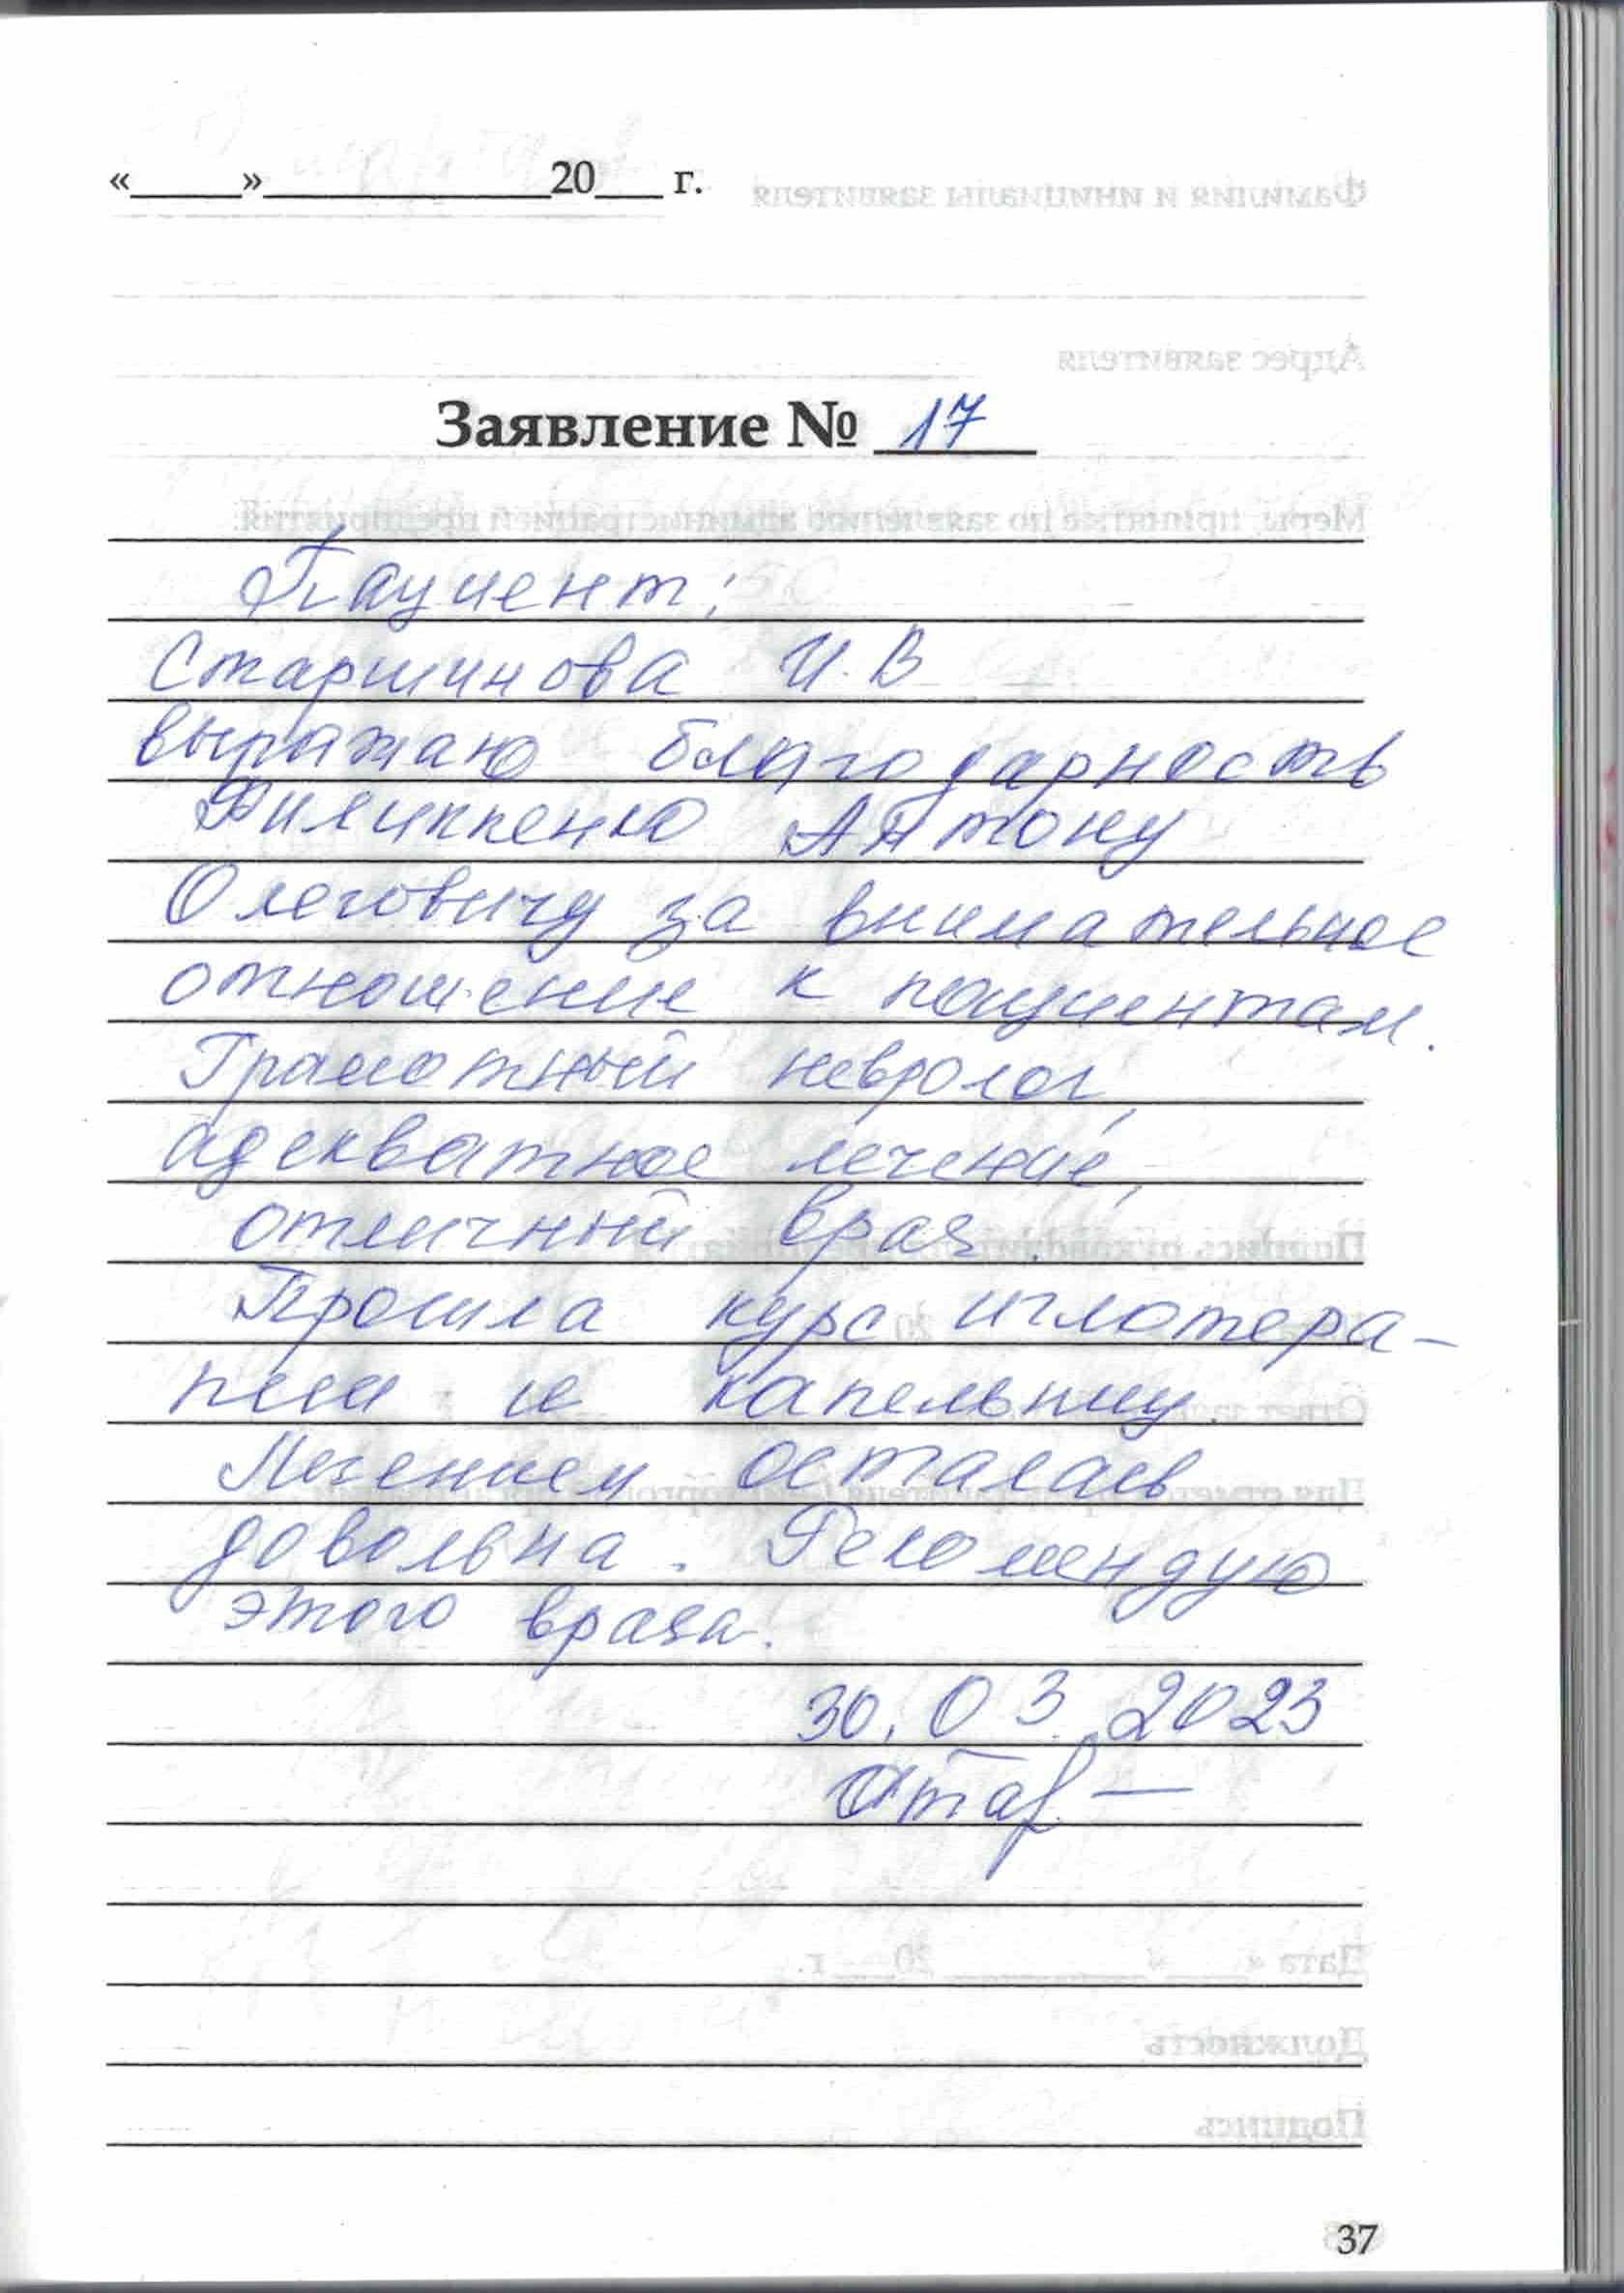 «____»____________20___ г.
Заявление № 17
Пациент:
Старшинова И.В
выражаю благодарность
Филиппенко Антону
Олеговичу за внимательное
отношение к пациентам.
Грамотный невролог,
адекватное лечение,
отличный врач.
Прошла курс иглотера-
пии и капельницу.
Лечением осталась
довольна. Рекомендую
этого врача.
30.03.2023
Стар
37